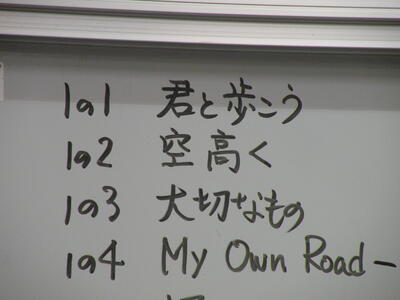 1の1 君と歩こう
1の2 空高く
1の3 大切なもの
1の4 My Own Road-